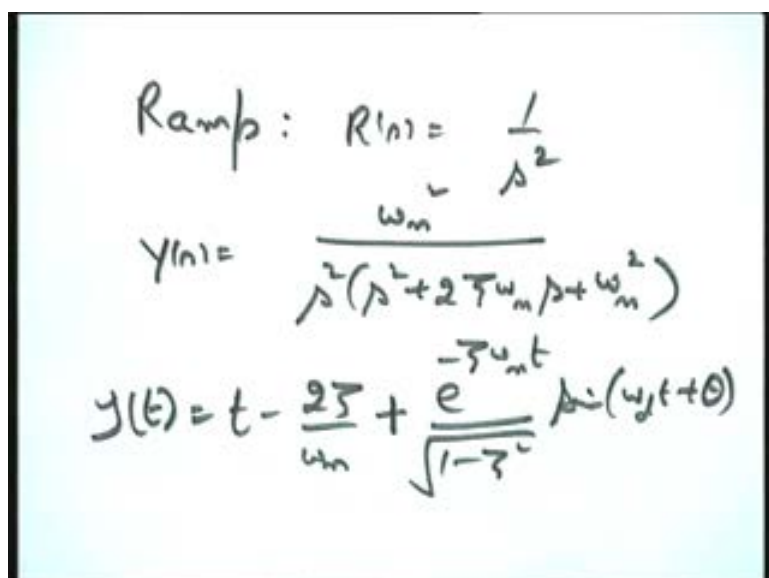 Ramp: R(s) = 1/s²
Y(s) = ωn² / s²(s² + 2ζωn s + ωn²)
y(t) = t - 2ζ/ωn + e^(-ζωn t)/√(1-ζ²) sin(ωd t + θ)